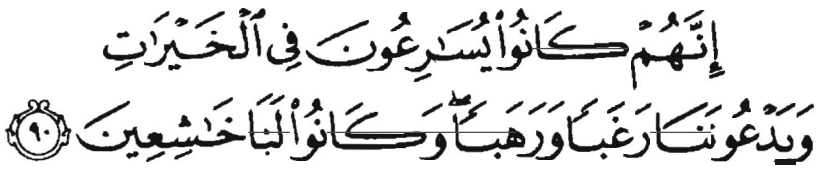 إِنَّهُمْ كَانُوا۟ يُسَـٰرِعُونَ فِى ٱلْخَيْرَٰتِ
وَيَدْعُونَنَا رَغَبًا وَرَهَبًا ۖ وَكَانُوا۟ لَنَا خَـٰشِعِينَ ٩٠